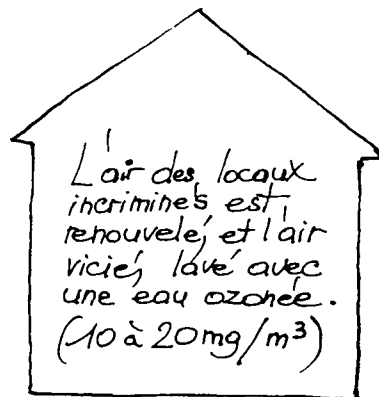 L'air des locaux
incriminés est
renouvelé, et l'air
vicié, lavé avec
une eau ozonée.
(10 à 20 mg/m³)